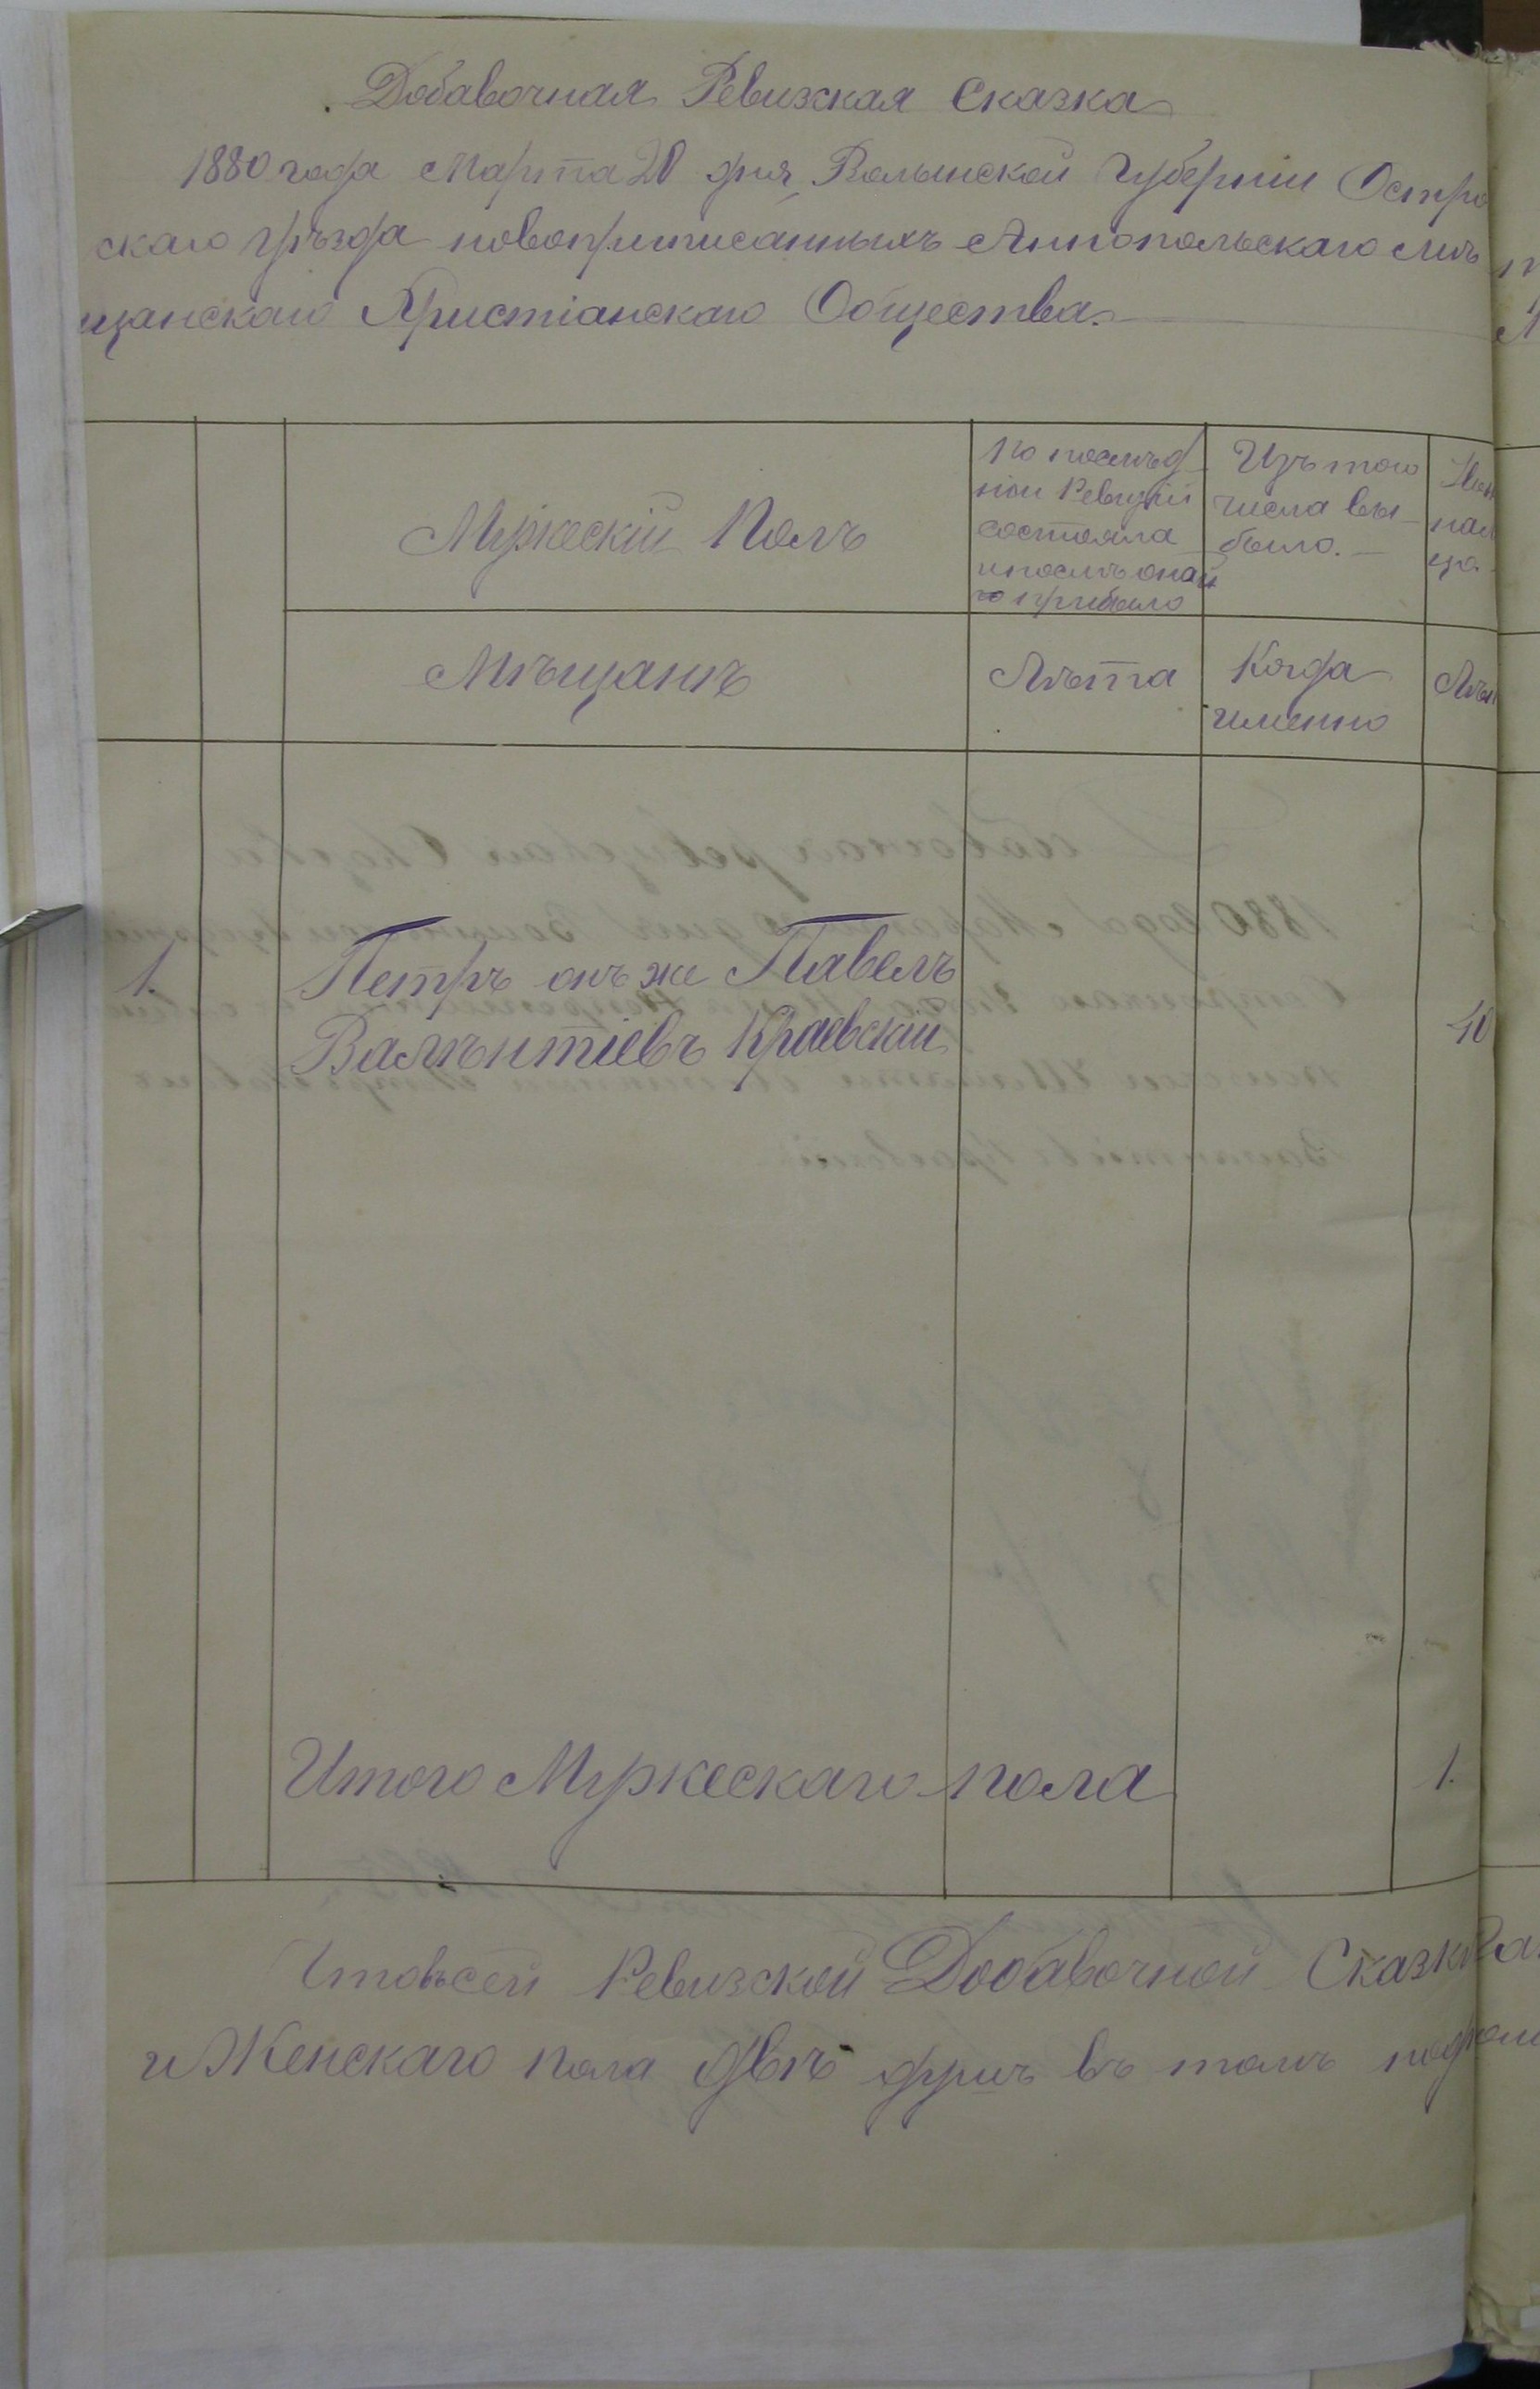 Добавочная Ревизская Сказка
1880 года Марта 20 дня Волынской Губерніи Остро
скаго уѣзда новоприписанныхъ Аннопольскаго мѣ
щанскаго Христіанскаго Общества.
Мужескій Полъ
По послѣд
ней Ревизіи
состояло
и послѣ оной
прибыло
Изъ того
числа вы
было.
нали
цо
Мѣщанъ
Лѣта
Когда
именно
Лѣт
1. Петръ онъ же Павелъ
Валѣнтіевъ Краевскій 40
Итого Мужескаго пола 1.
Ревизской Добавочной Сказк
и Женскаго пола двѣ душъ въ томъ